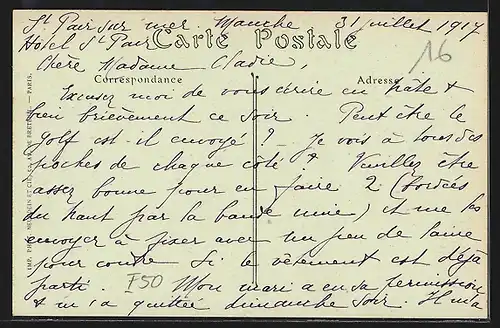 St Pair sur mer Manche 31 juillet 1917
Hôtel St Pair Carte Postale
16
Chère Madame Cladie,
Correspondance Adresse
Excusez moi de vous écrire en hâte &
bien brièvement ce soir. Peut être le
golf est il envoyé? Je vois à tous des
poches de chaque côté & Veuillez être
assez bonne pour en faire 2 (bordées
du haut par la bande unie) et me les
envoyer à fixer avec un peu de laine
pour coudre Si le vêtement est déjà
parti. Mon mari a eu sa permission
F50
& m'a quittée dimanche soir. Il m'a